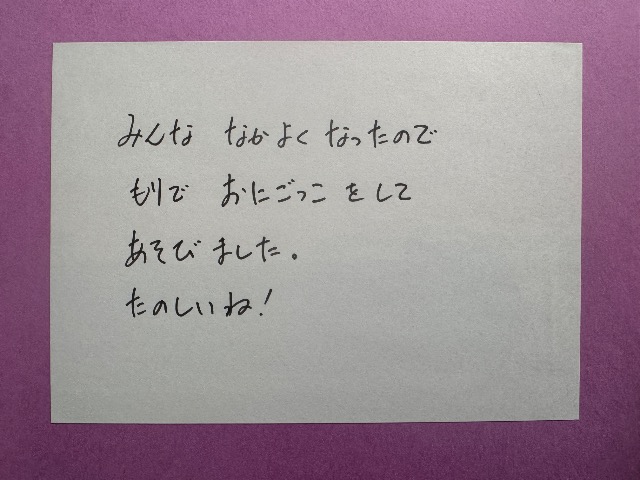 みんな なかよく なったので
もりで おにごっこ をして
あそび ました。
たのしいね!